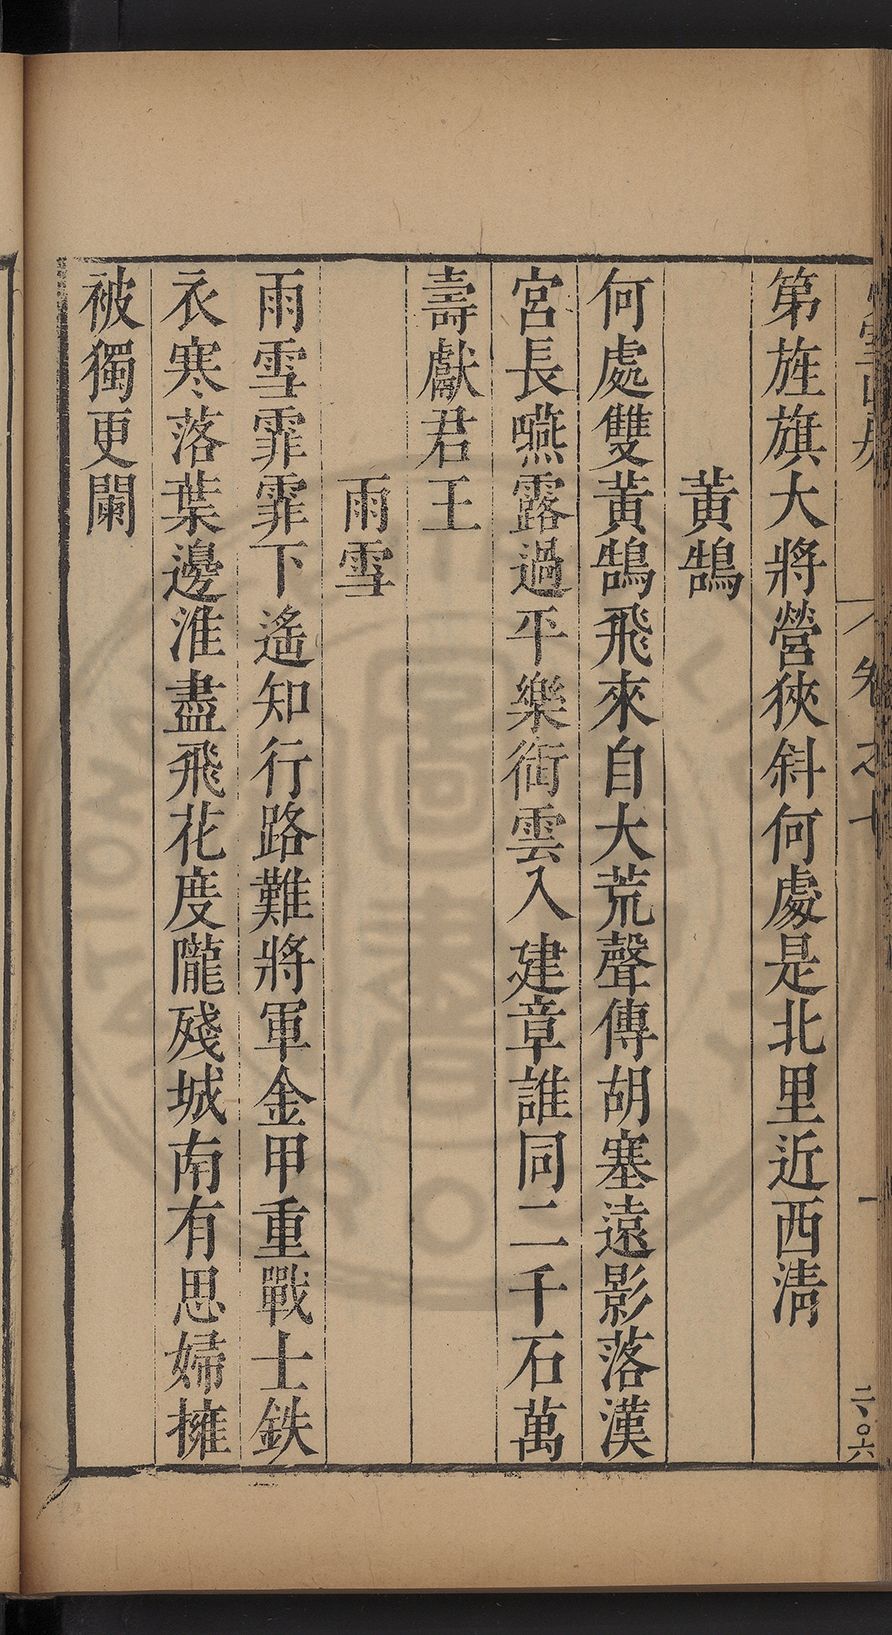 卷之十
一
二〇六
第旌旗大將營狹斜何處是北里近西淸
黃鵠
何處雙黃鵠飛來自大荒聲傳胡塞遠影落漢
宮長嚥露過平樂銜雲入建章誰同二千石萬
壽獻君王
雨雪
雨雪霏霏下遙知行路難將軍金甲重戰士鉄
衣寒落葉邊淮盡飛花度隴殘城南有思婦擁
被獨更闌